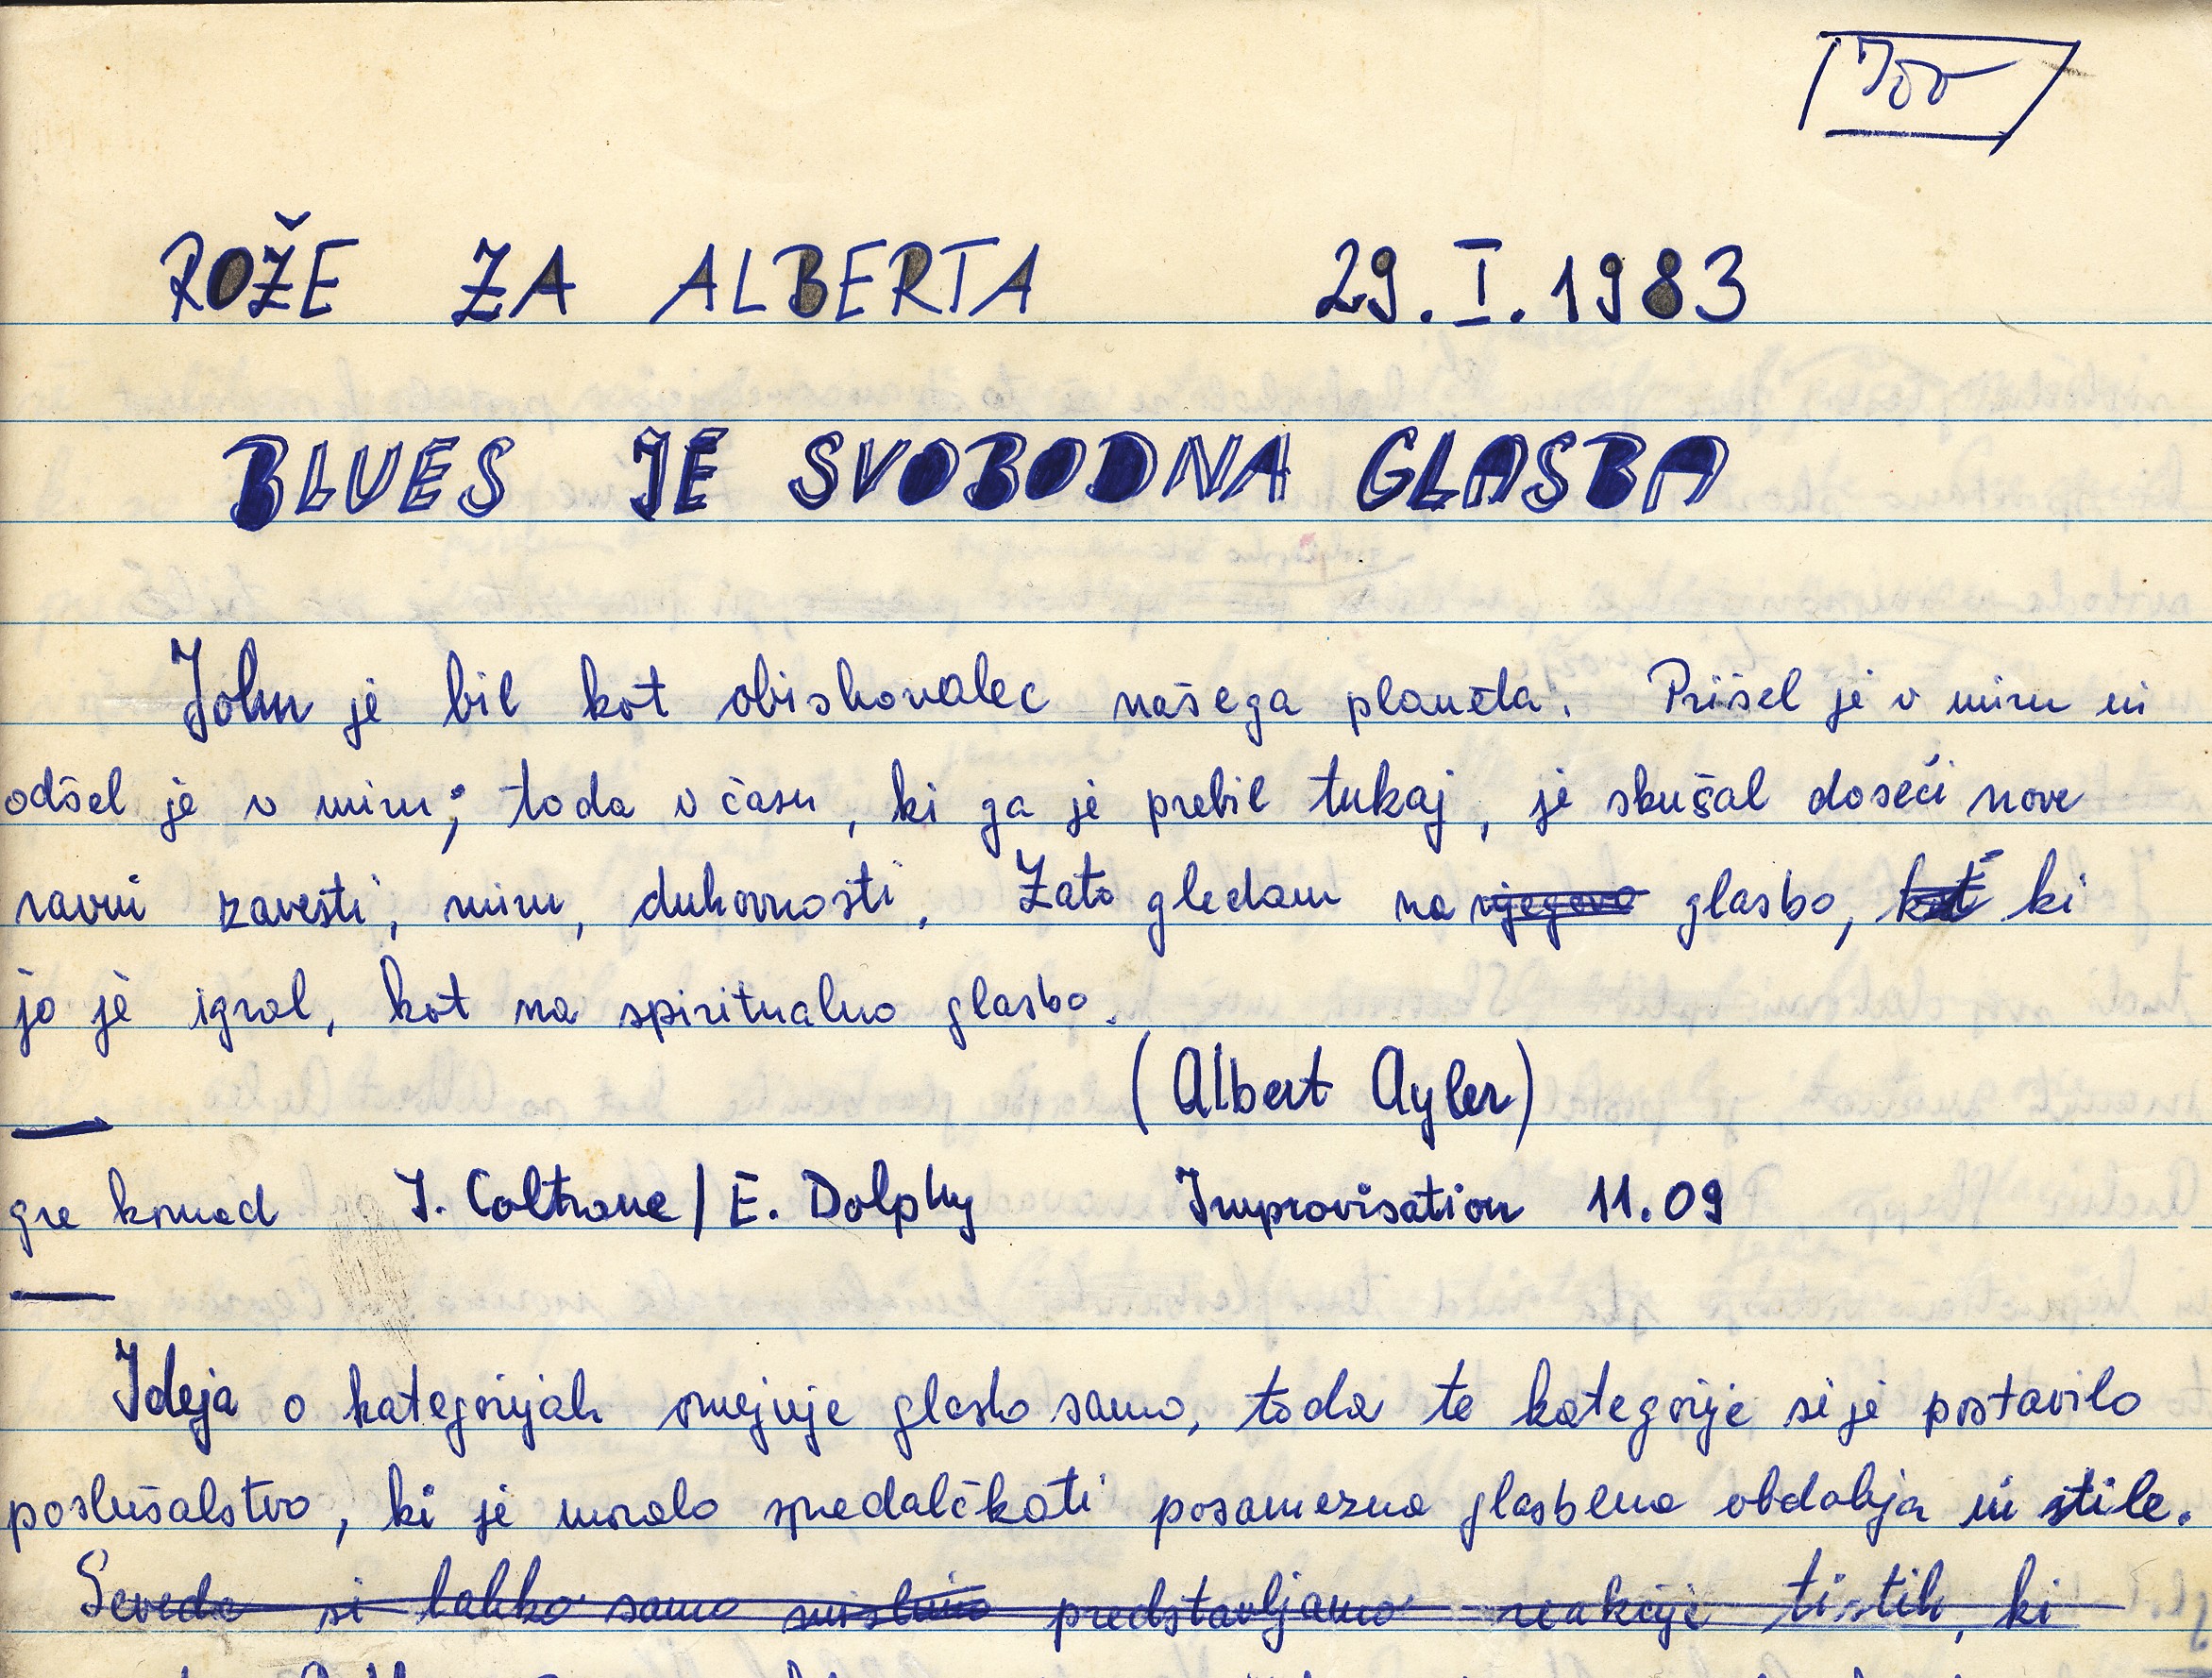 ROŽE ZA ALBERTA 29. I. 1983
BLUES JE SVOBODNA GLASBA
John je bil kot obiskovalec našega planeta. Prišel je v miru in
odšel je v miru; toda v času, ki ga je prebil tukaj, je skušal doseči nove
ravni zavesti, miru, duhovnosti. Zato gledam na njegovo glasbo, kot ki
jo je igral, kot na spiritualno glasbo.
(Albert Ayler)
gre komad J. Coltrane / E. Dolphy Improvisation 11.09
Ideja o kategorijah omejuje glasbo samo, toda te kategorije si je postavilo
poslušalstvo, ki je moralo spredalčkati posamezna glasbena obdobja in stile.
Seveda si lahko samo mislimo predstavljamo reakcije tistih, ki